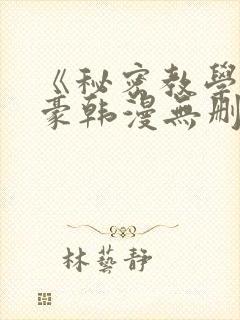 《秘密教學
豪韩漫無删
林藝静